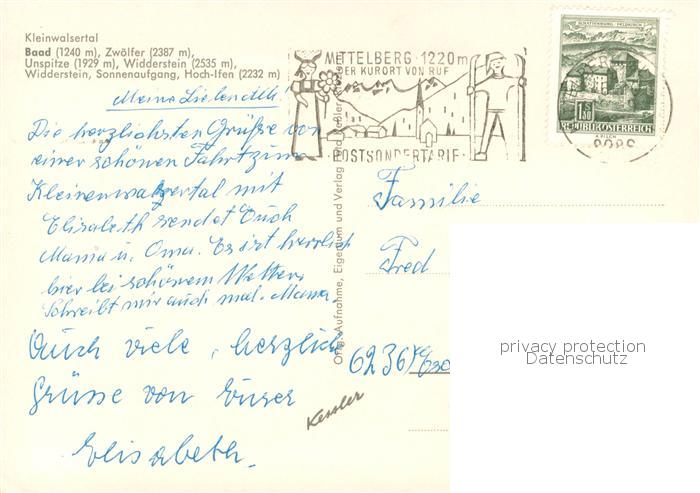 Kleinwalsertal
Baad (1240 m), Zwölfer (2387 m),
Unspitze (1929 m), Widderstein (2535 m),
Widderstein, Sonnenaufgang, Hoch-Ifen (2232 m)
Meine Lieben All.
Die herzlichsten Grüsse von
einer schönen Fahrt zum
Kleinenwalzertal mit
Elisabeth sendet Euch
Mama u. Oma. Es ist herrlich
hier bei schönem Wetter.
Schreibt mir auch mal. Mama.
Euch viele, herzliche
Grüsse von Eurer
Elisabeth.
MITTELBERG · 1220 m
DER KURORT VON RUF
POSTSONDERTARIF
SCHATTENBURG · FELDKIRCH
1.80
REPUBLIK ÖSTERREICH
Orig. Aufnahme, Eigentum und Verlag
Familie
Fred
6236
Kessler
privacy protection
Datenschutz